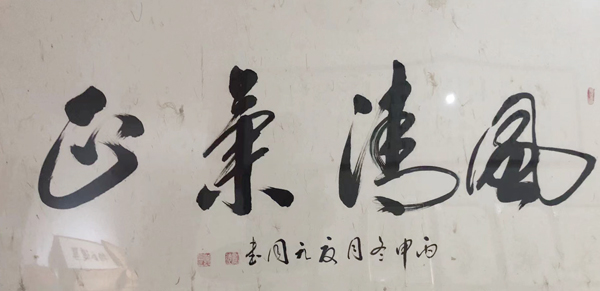 風清氣正
丙申冬月友元周书